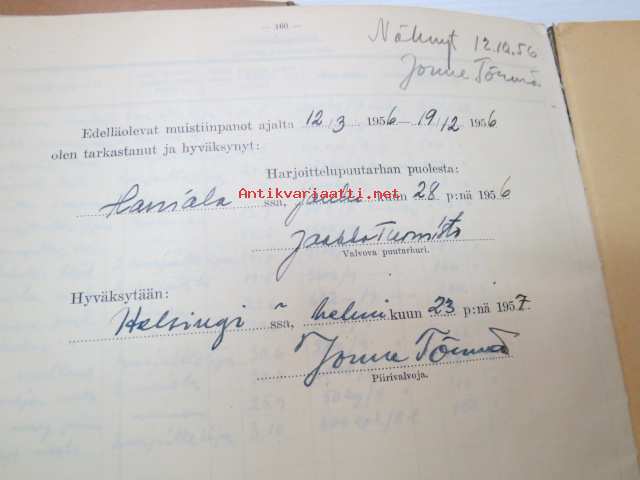 — 160 —
Nähnyt 12.10.56
Jorma Törmä
Edelläolevat muistiinpanot ajalta 12/3 1956 — 19/12 1956
olen tarkastanut ja hyväksynyt:
Harjoittelupuutarhan puolesta:
Antikvariaatti.net
ssa, joulu kuun 28 p:nä 1956
Jaakko Tuomisto
Valvova puutarhuri.
Hyväksytään:
Helsingi ssä, helmi kuun 23 p:nä 1957.
Jorma Törmä
Piirivalvoja.